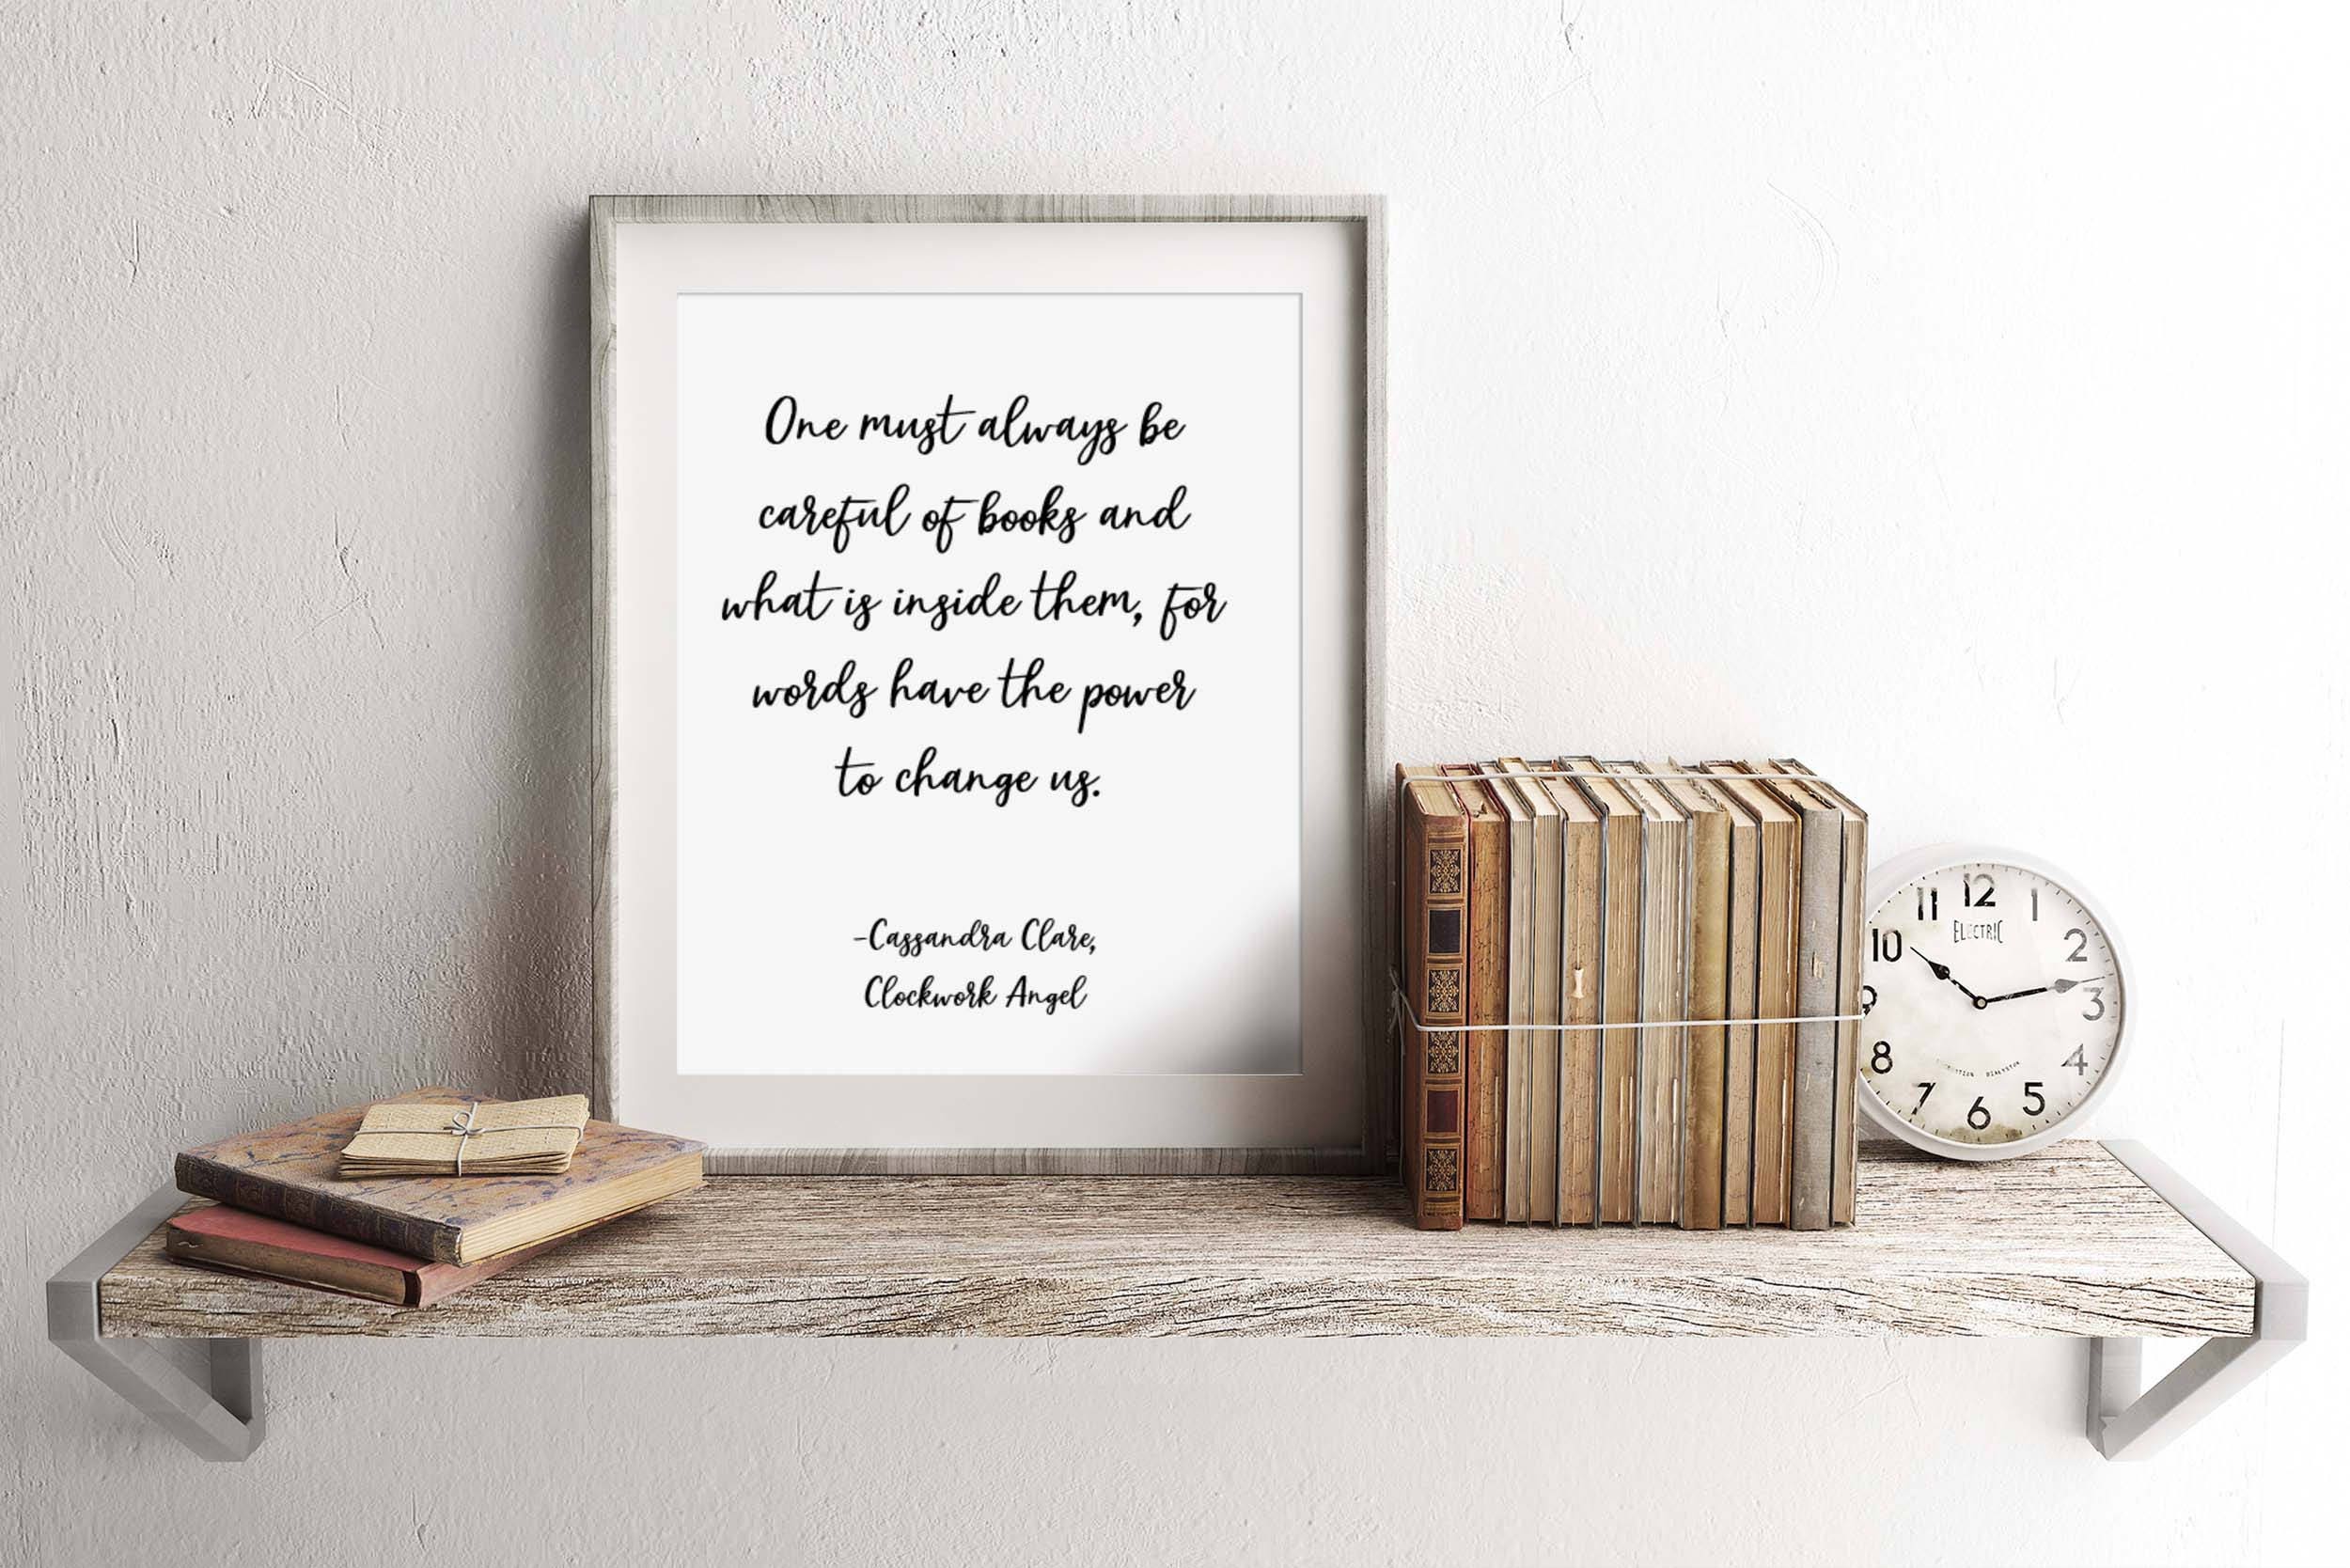 One must always be
careful of books and
what is inside them, for
words have the power
to change us.
-Cassandra Clare,
Clockwork Angel
11 12 1
ELECTRIC
10 2
9 3
8 4
7 6 5